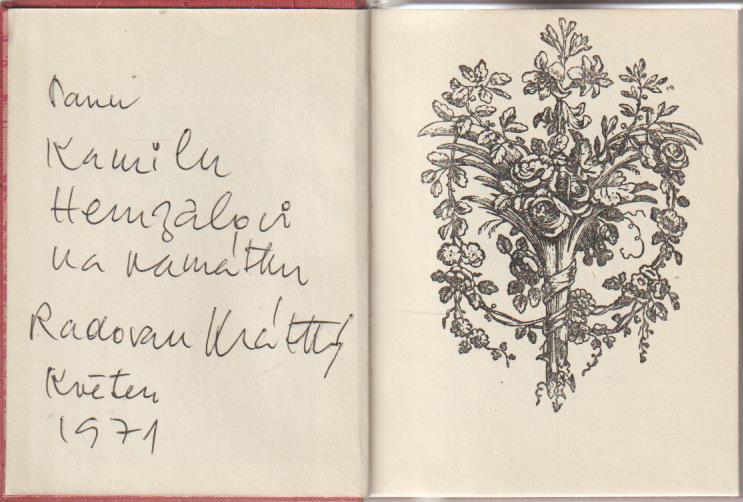 Panu
Kamilu
Hemzalovi
na památku
Radovan Krátký
Květen
1971